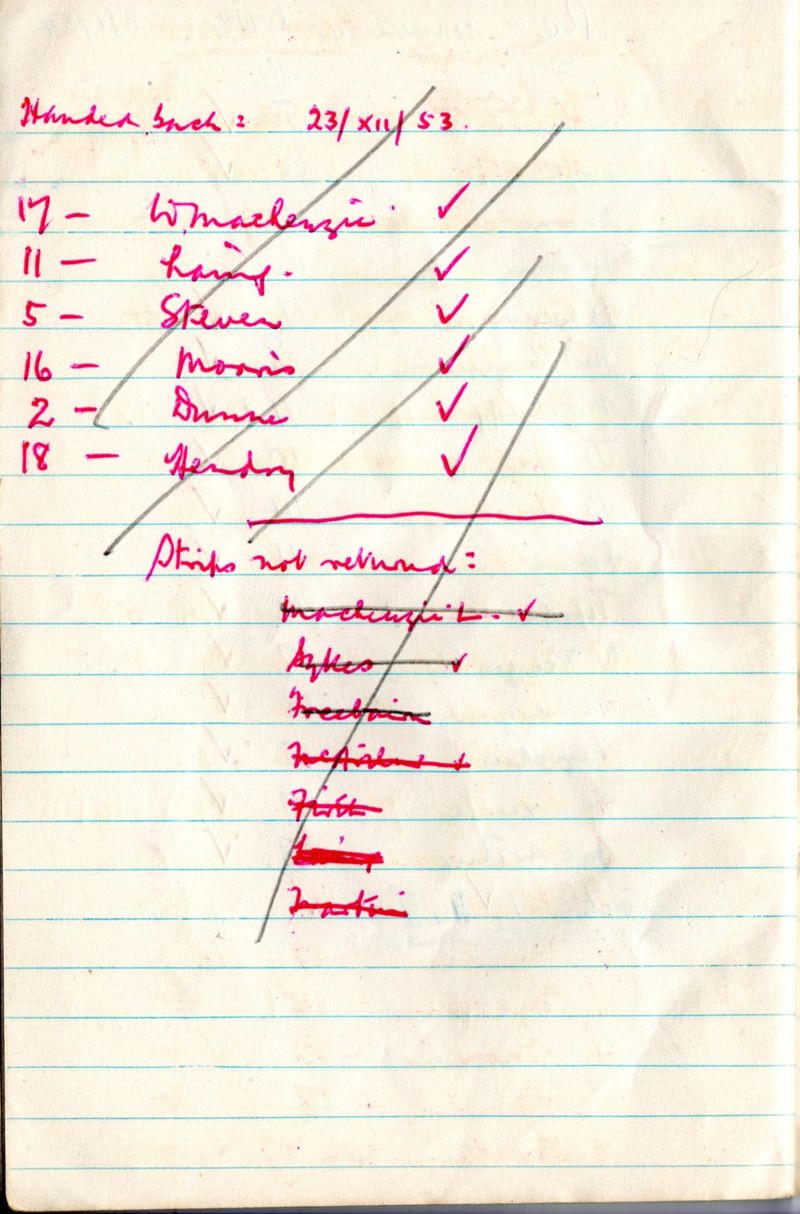 Handed back: 23/XII/53.
17 – W Mackenzie. ✓
11 – Laing. ✓
5 – Steven ✓
16 – Morris ✓
2 – Dunne ✓
18 – Hendry ✓
Strips not returned:
Mackenzie L. ✓
Sykes ✓
Freebairn
Firth
Laing